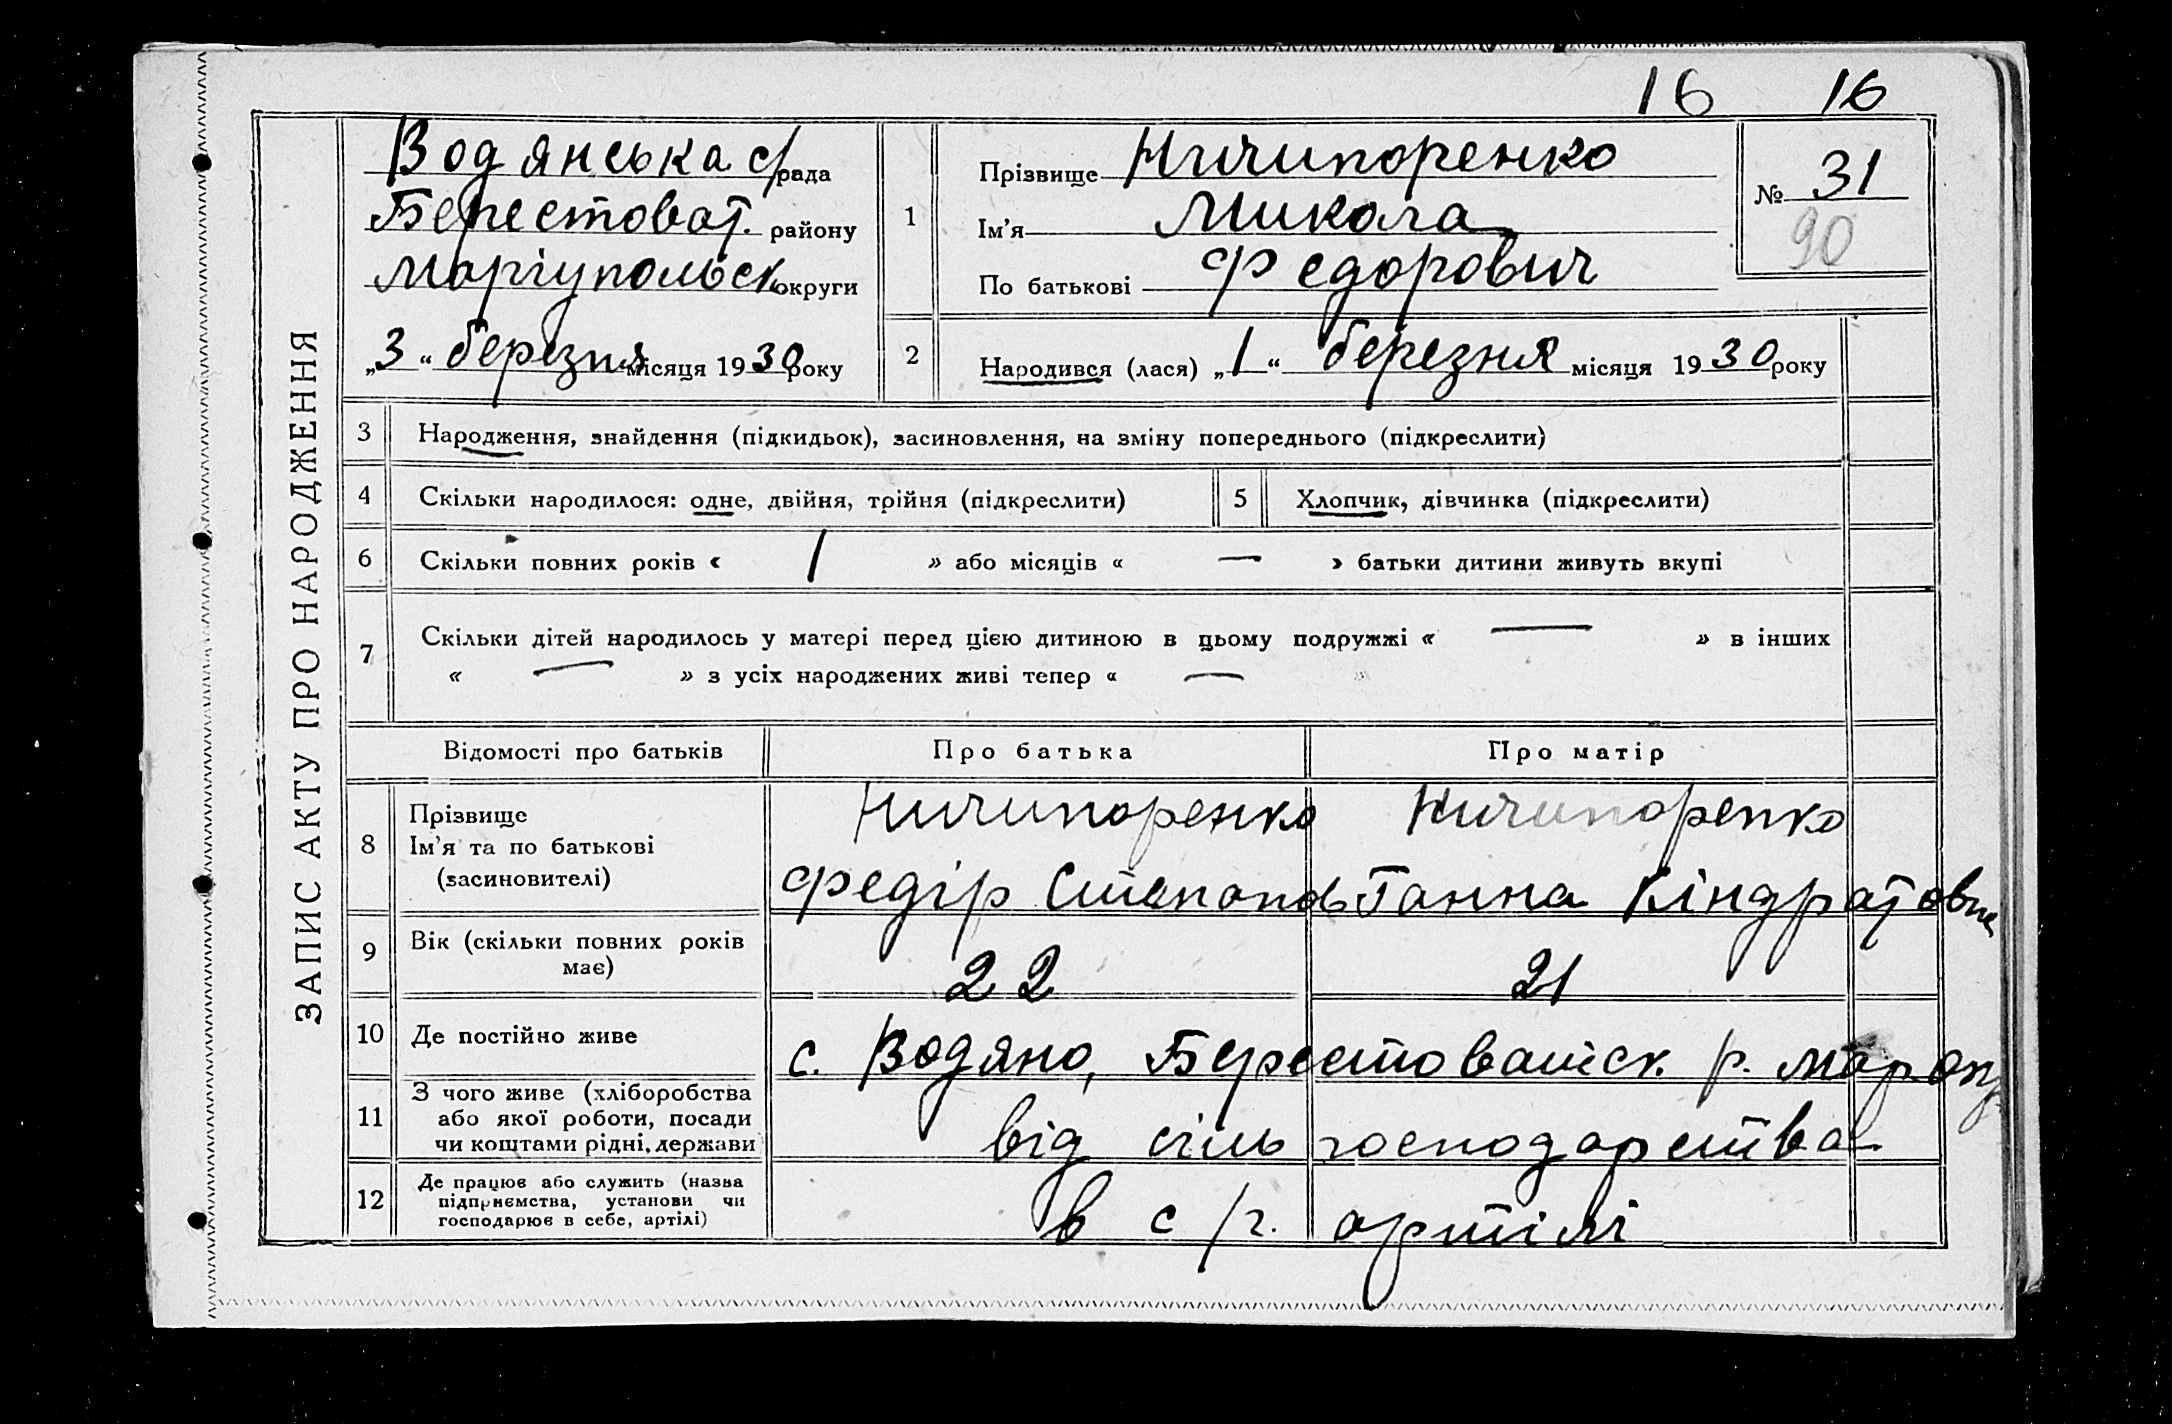 16 16
ЗАПИС АКТУ ПРО НАРОДЖЕННЯ
Водянська с/рада
Берестоват. району
Маріупольськ округи
„3“ березня місяця 1930 року
1
Прізвище Ничипоренко
Ім'я Микола
По батькові Федорович
№ 31
90
2 Народився (лася) „1“ березня місяця 1930 року
3 Народження, знайдення (підкидьок), засиновлення, на зміну попереднього (підкреслити)
4 Скільки народилося: одне, двійня, трійня (підкреслити) 5 Хлопчик, дівчинка (підкреслити)
6 Скільки повних років « 1 » або місяців « — » батьки дитини живуть вкупі
7 Скільки дітей народилось у матері перед цією дитиною в цьому подружжі « — » в інших
« — » з усіх народжених живі тепер « — »
Відомості про батьків Про батька Про матір
8 Прізвище
Ім'я та по батькові
(засиновителі)
Ничипоренко Ничипоренко
Федір Степанов Ганна Кіндратовна
9 Вік (скільки повних років
має)
22 21
10 Де постійно живе
с. Водяно, Берестоватск. р. Мар. окр
11 З чого живе (хліборобства
або якої роботи, посади
чи коштами рідні, держави
від сіль господарства
12 Де працює або служить (назва
підприємства, установи чи
господарює в себе, артілі)
в с/г. артілі